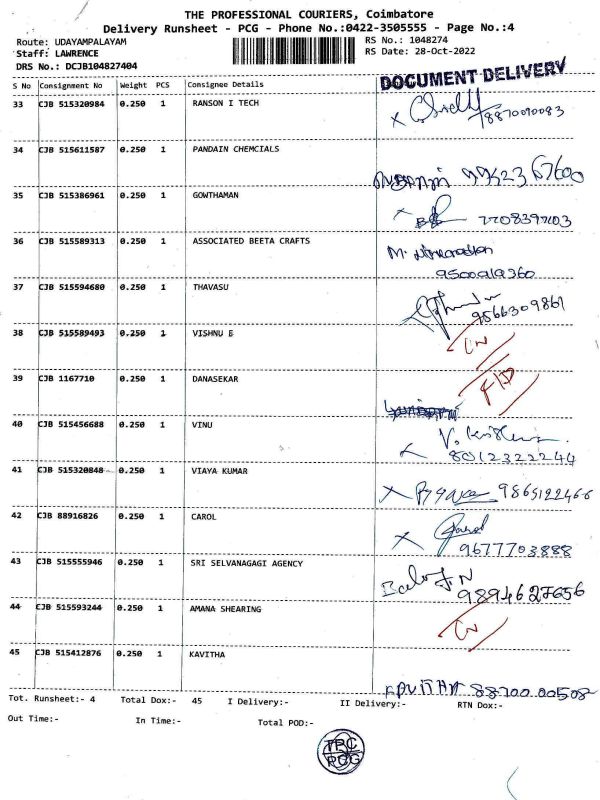 THE PROFESSIONAL COURIERS, Coimbatore
Delivery Runsheet - PCG - Phone No.:0422-3505555 - Page No.:4
Route: UDAYAMPALAYAM RS No.: 1048274
Staff: LAWRENCE RS Date: 28-Oct-2022
DRS No.: DCJB104827404
DOCUMENT DELIVERY
S No Consignment No Weight PCS Consignee Details
33 CJB 515320984 0.250 1 RANSON I TECH
8870090083
34 CJB 515611587 0.250 1 PANDAIN CHEMCIALS
99523 67600
35 CJB 515386961 0.250 1 GOWTHAMAN
36 CJB 515589313 0.250 1 ASSOCIATED BEETA CRAFTS
9500919360
37 CJB 515594680 0.250 1 THAVASU
9566309861
38 CJB 515589493 0.250 1 VISHNU E
39 CJB 1167710 0.250 1 DANASEKAR
40 CJB 515456688 0.250 1 VINU
8012322244
41 CJB 515320848 0.250 1 VIAYA KUMAR
9865122466
42 CJB 88916826 0.250 1 CAROL
Carol
9677703888
43 CJB 515555946 0.250 1 SRI SELVANAGAGI AGENCY
9894627656
44 CJB 515593244 0.250 1 AMANA SHEARING
45 CJB 515412876 0.250 1 KAVITHA
KAVITHA 88700 00508
Tot. Runsheet:- 4 Total Dox:- 45 I Delivery:- II Delivery:- RTN Dox:-
Out Time:- In Time:- Total POD:-
TPC
PCG